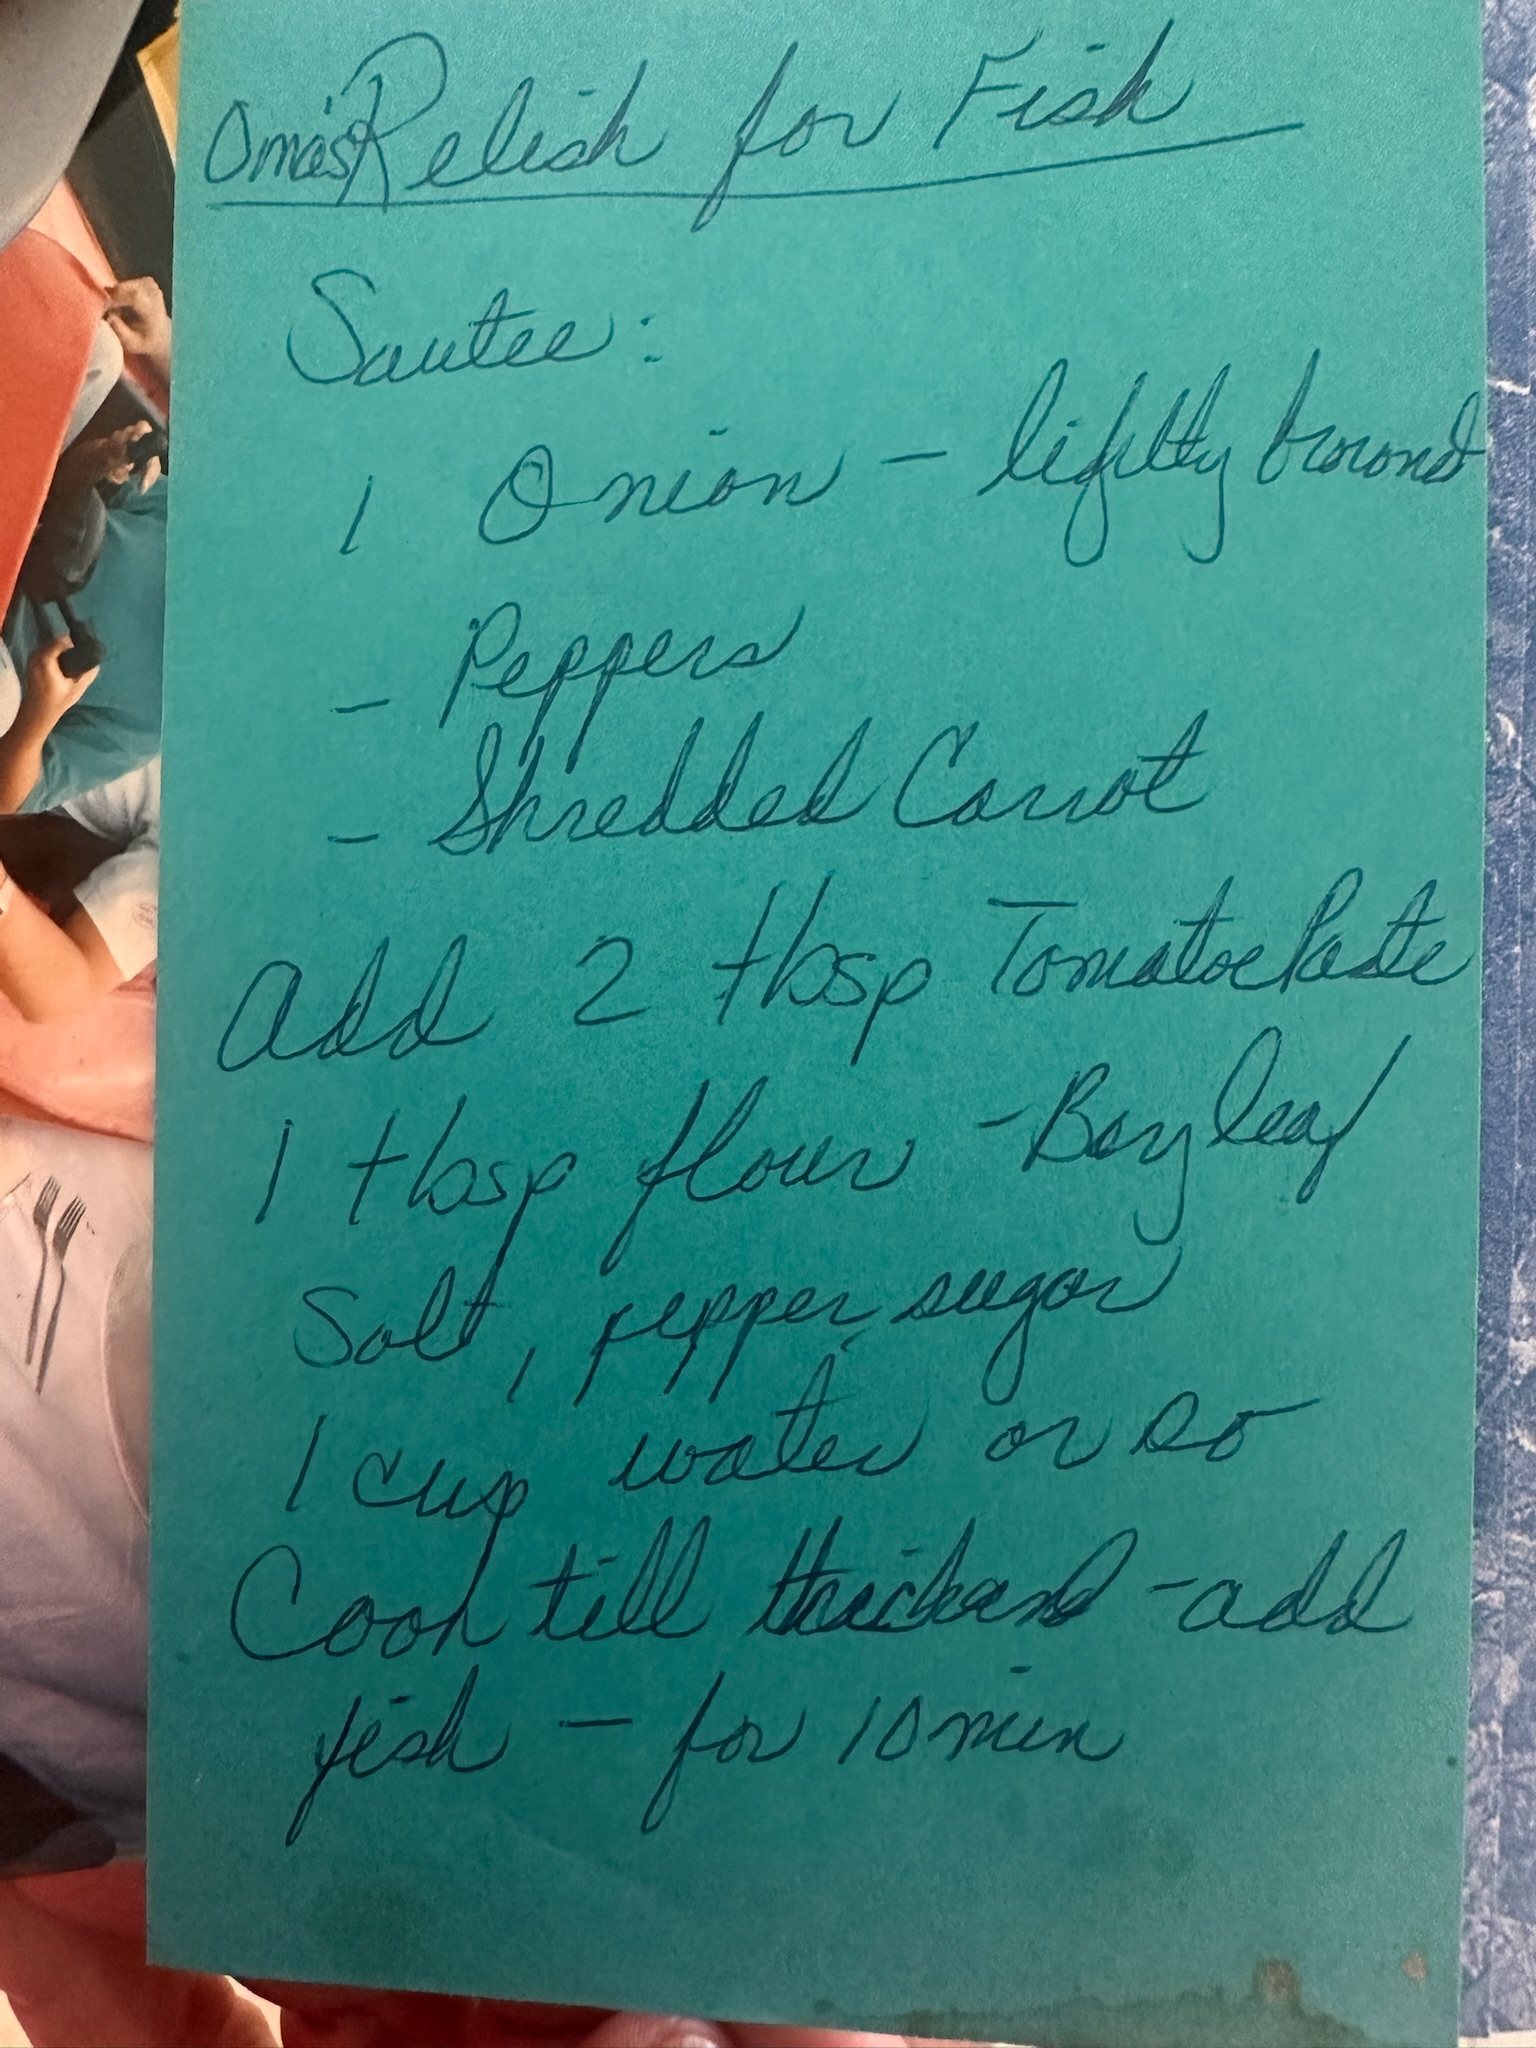 Oma's Relish for Fish
Sautee:
1 Onion - lightly browned
- Peppers
- Shredded Carrot
Add 2 tbsp Tomatoe Paste
1 tbsp flour - Bay leaf
Salt, pepper, sugar
1 cup water or so
Cook till thickend - add
fish - for 10 min